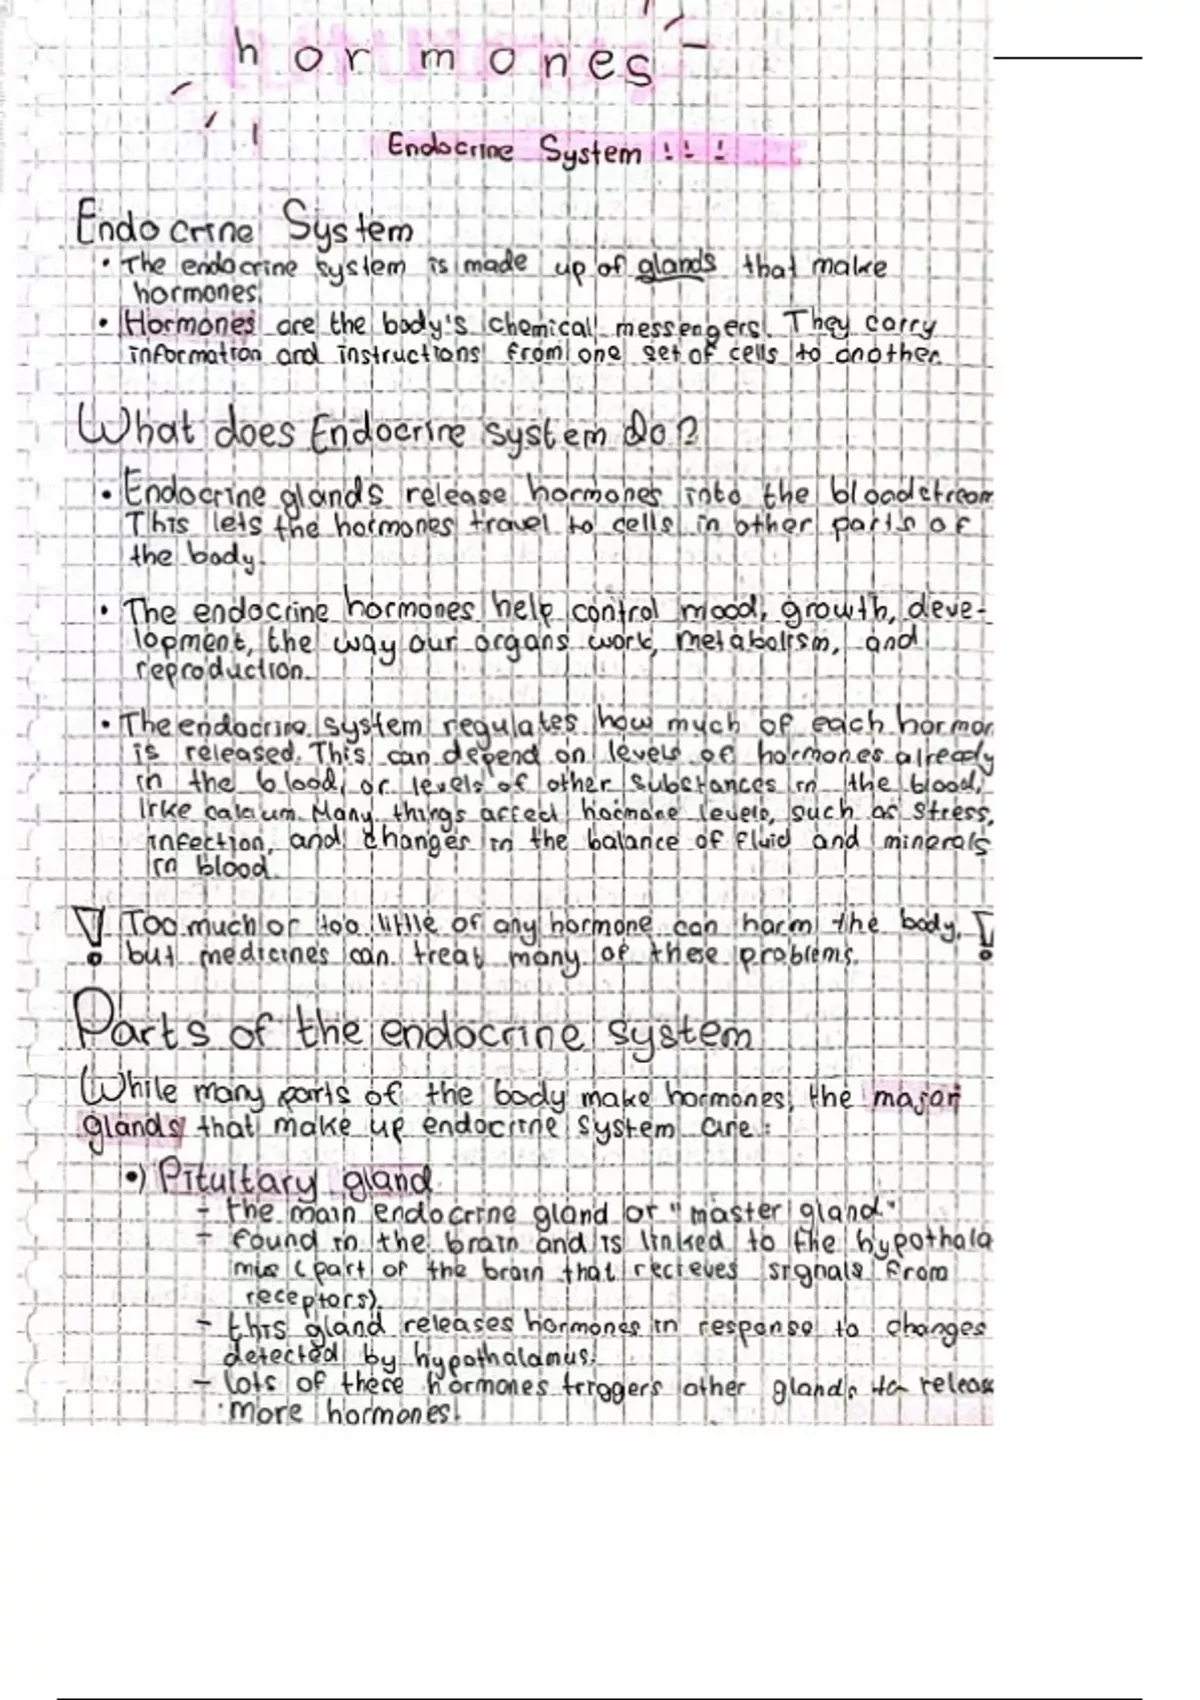 hormones
Endocrine System !!!
Endocrine System
• The endocrine system is made up of glands that make
hormones.
• Hormones are the body's chemical messengers. They carry
information and instructions from one set of cells to another.
What does Endocrine system do?
• Endocrine glands release hormones into the bloodstream
This lets the hormones travel to cells in other parts of
the body.
• The endocrine hormones help control mood, growth, deve-
lopment, the way our organs work, metabolism, and
reproduction.
• The endocrine system regulates how much of each hormon
is released. This can depend on levels of hormones already
in the blood, or levels of other substances in the blood,
like calcium. Many things affect hormone levels, such as stress,
infection, and changes in the balance of fluid and minerals
in blood.
! Too much or too little of any hormone can harm the body, !
but medicines can treat many of these problems.
Parts of the endocrine system
While many parts of the body make hormones, the major
glands that make up endocrine system are:
•) Pituitary gland
- the main endocrine gland or "master gland"
- found in the brain and is linked to the hypothala
mus (part of the brain that recieves signals from
receptors).
- this gland releases hormones in response to changes
detected by hypothalamus.
- lots of these hormones triggers other glands to releas
more hormones.